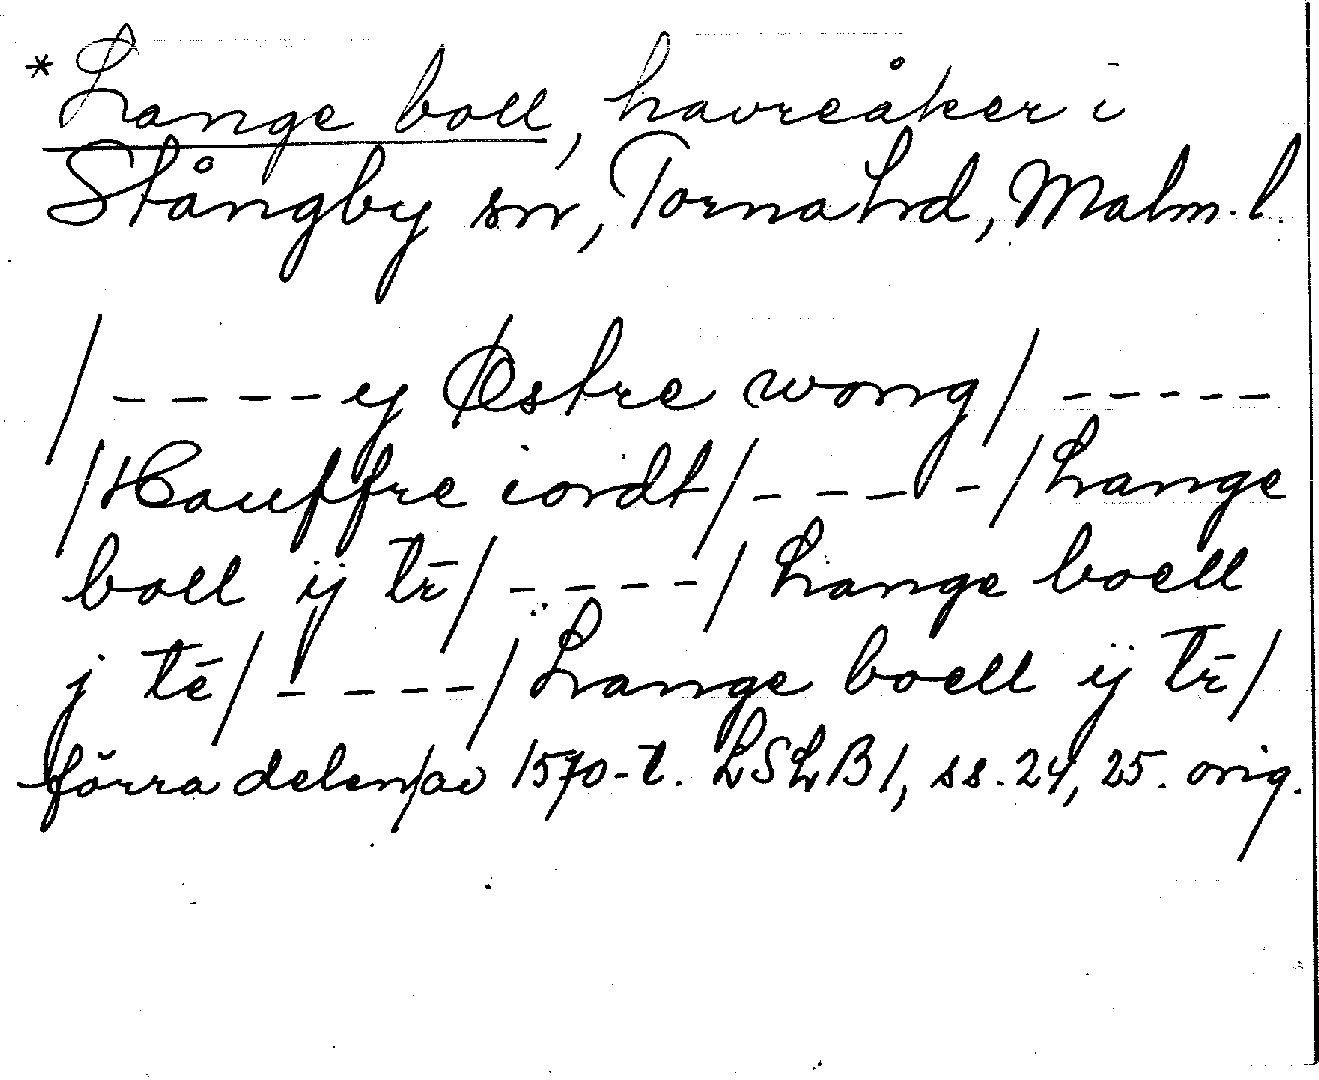 *Lange boll, havreåker i
Stångby sn, Torna hd, Malm. l.
/ - - - - ij Østre wong / - - - - -
/ Hauffre iordt / - - - - / Lange
boll ij tr̄ / - - - - / Lange boell
j tē / - - - - / Lange boell ij tr̄ /
förra delen/av 1570-t. LSLB 1, ss. 24, 25. orig.